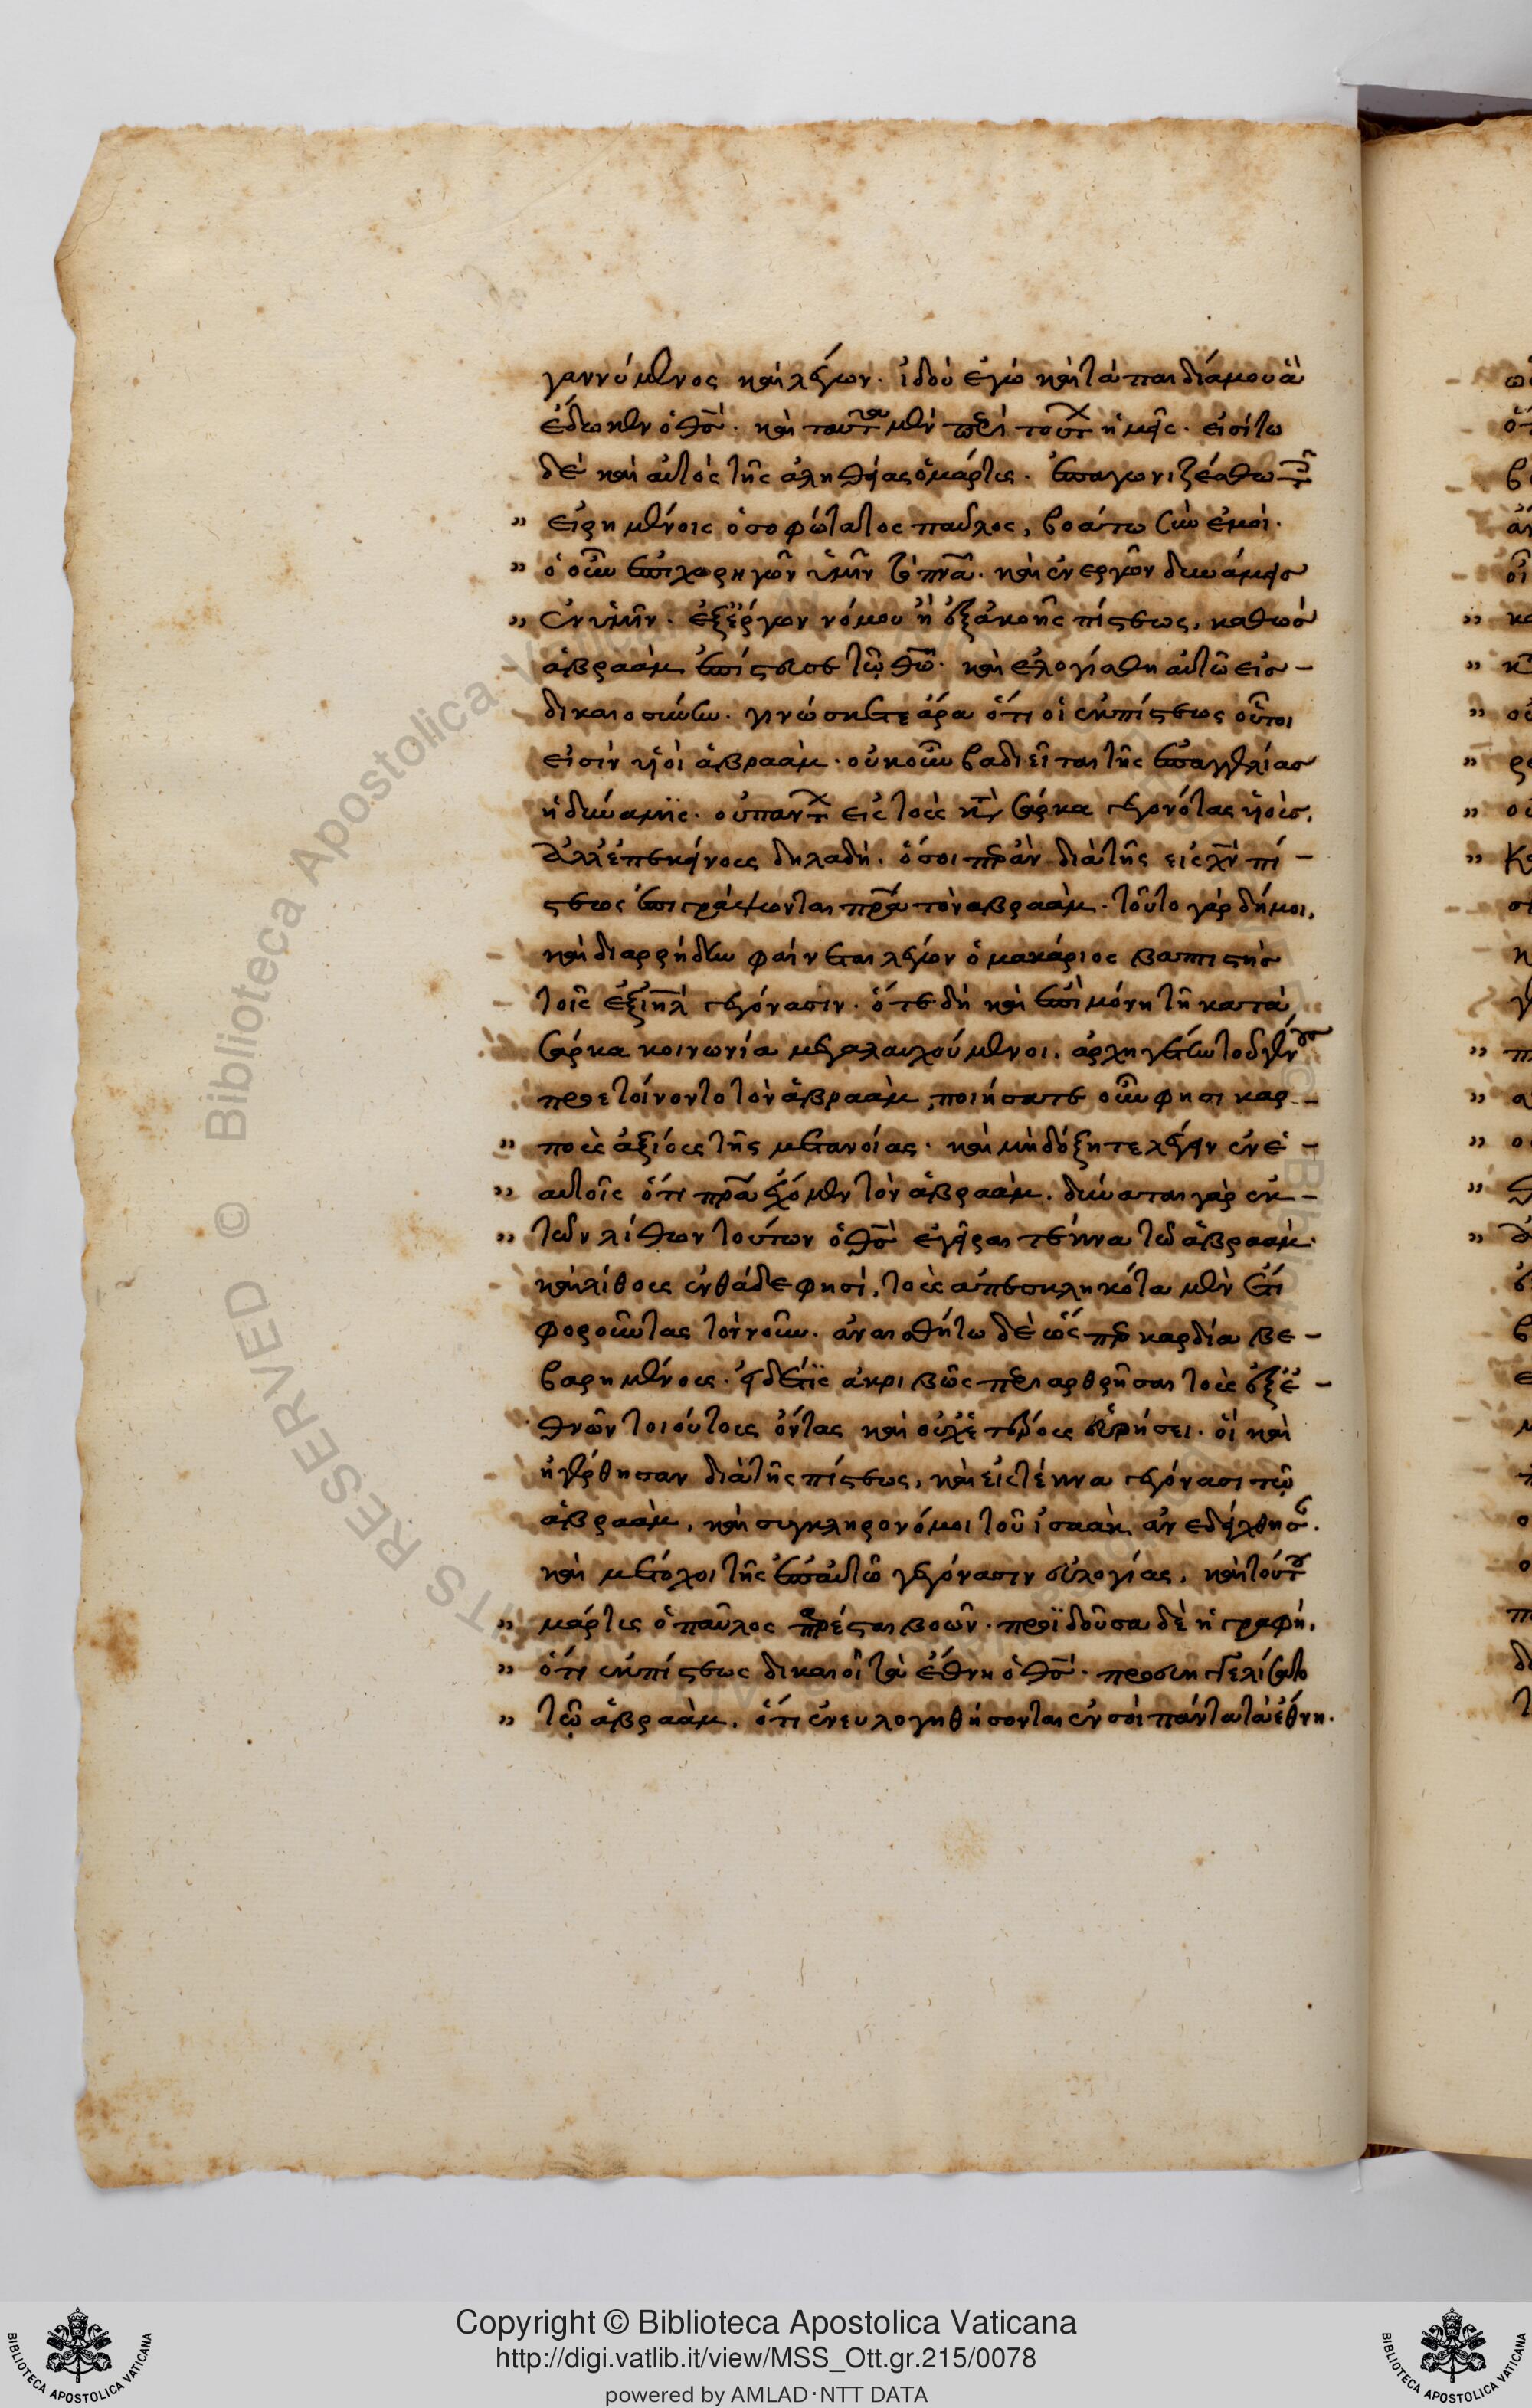 γαννύμενος καὶ λέγων· ἰδοὺ ἐγὼ καὶ τὰ παιδία μου ἃ
ἔδωκεν ὁ θς̅· καὶ ταῦτα μὲν περὶ τούτου ἡμεῖς· εἰσίτω
δὲ καὶ αὐτὸς τῆς ἀληθείας ὁ μάρτυς· ἐπαγωνιζέσθω τοῖς
" εἰρημένοις ὁ σοφώτατος παῦλος, βοάτω σὺν ἐμοί·
" ὁ οὖν ἐπιχορηγῶν ὑμῖν τὸ πνα̅· καὶ ἐνεργῶν δυνάμεις
" ἐν ὑμῖν· ἐξ ἔργων νόμου ἢ ἐξ ἀκοῆς πίστεως, καθὼς
ἀβραὰμ ἐπίστευσε τῷ θω̅· καὶ ἐλογίσθη αὐτῶ εἰς -
δικαιοσύνην· γινώσκετε ἄρα ὅτι οἱ ἐκ πίστεως οὗτοι
εἰσὶν υἱοὶ ἀβραάμ· οὐκοῦν βαδιεῖται τῆς ἐπαγγελίας
ἡ δύναμις· οὐ πάντως εἰς τοὺς κατὰ σάρκα γεγονότας υἱοὺς,
ἀλλ' ἐπ' ἐκείνους δηλαδή· ὅσοιπερ ἂν διὰ τῆς εἰς χν̅ πί -
στεως ἐπιγράψωνται πρα̅ τὸν ἀβραάμ· τοῦτο γάρ δήμοι,
καὶ διαρρήδην φαίνεται λέγων ὁ μακάριος βαπτιστὴς
τοῖς ἐξ ιηλ̅ γεγόνασιν· ὅτε δὴ καὶ ἐπὶ μόνη τῆ κατὰ
σάρκα κοινωνία μεγαλαυχούμενοι, ἀρχηγέτην τοῦ γένους
προετείνοντο τὸν ἀβραάμ, ποιήσατε οὖν φησι καρ -
" ποὺς ἀξίους τῆς μετανοίας· καὶ μὴ δόξητε λέγειν ἐν ἑ -
" αυτοῖς ὅτι πρα̅ ἔχομεν τὸν ἀβραάμ· δύναται γὰρ ἐκ -
" τῶν λίθων τούτων ὁ θς̅ ἐγεῖραι τέκνα τῶ ἀβραάμ·
καὶ λίθους ἐνθάδε φησὶ, τοὺς ἀπεσκληκότα μὲν ἔτι
φοροῦντας τὸν νοῦν· ἀναισθήτω δὲ ὥσπερ καρδία βε -
βαρημένους· εἰ δέ τις ἀκριβῶς περιαρθρῆσαι τοὺς ἐξ ἐ -
θνῶν τοιούτους ὄντας καὶ οὐχ ἑτέρους εὑρήσει· οἳ καὶ
ἠγέρθησαν διὰ τῆς πίστεως, καὶ εἰς τέκνα γεγόνασι τῷ
ἀβραάμ, καὶ συγκληρονόμοι τοῦ ἰσαὰκ ἀνεδείχθησαν·
καὶ μέτοχοι τῆς ἐπ' αὐτῶ γεγόνασιν εὐλογίας, καὶ τούτου
" μάρτυς ὁ παῦλος παρέσται βοῶν· προϊδοῦσα δὲ ἡ γραφὴ,
" ὅτι ἐκ πίστεως δικαιοῖ τὰ ἔθνη ὁ θς̅· προευηγγελίσατο
" τῷ ἀβραάμ, ὅτι ἐνευλογηθήσονται ἐν σοὶ πάντα τὰ ἔθνη·
Copyright © Biblioteca Apostolica Vaticana
http://digi.vatlib.it/view/MSS_Ott.gr.215/0078
powered by AMLAD·NTT DATA